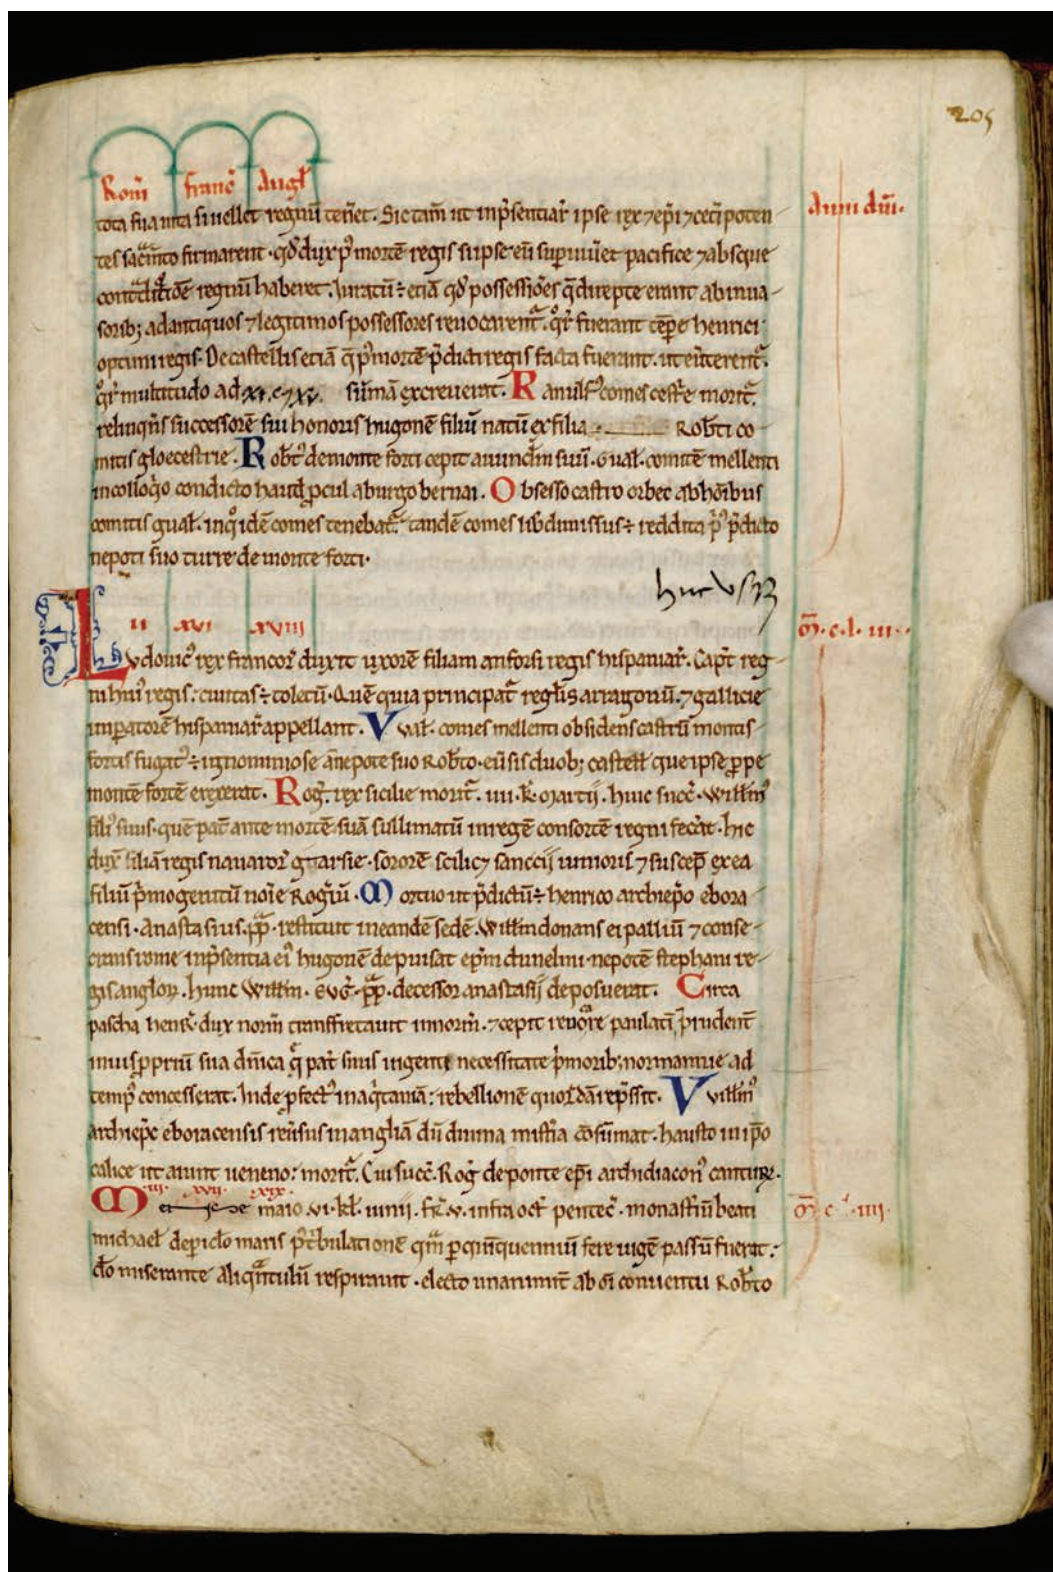 205
Rom̄ francˀ Angł
Anni dn̄i.
tota sua uita si uellet regnū tenˀet. Sic tam̄ ut in p̄sentiarˀ ipse rex ⁊ ep̄i ⁊ cetˀi poten
tes sacͣm̄to firmarent · qđ dux pˀ mortē regis si ipse eū sup̲uiuˀet pacifice ⁊ absque
contͣdictiōe regnū haberet. Juratū ÷ etiā qđ possessiōes q̄ direpte erant ab inua
sorib; ad antiquos ⁊ legitimos possessores reuocarentˀ. qͦrˀ fuerant tēp̲e henrici
optimi regis. De castellis etiā q̄ pˀ mortē p̄dicti regis facta fuerant. ut euˀterentˀ.
qͦrˀ multitudo ad xi. c. ⁊ xv. sūmā excreuerat. Ranulfˀ comes cestˀe moritˀ.
relinqn̄s successorē sui honoris hugonē filiū natū ex filia Rob̄ti co
mitis gloecestrie. Rob̄tˀ de monte forti cepit auunclm̄ suū. Gual. comitē mellenti
in colloqͦio condicto haud p̲cul a burgo bernai. Obsesso castro orbec ab hōibus
comitis gual. in qͦ idē comes tenebatˀ. tandē comes lib̄ dimissus ÷ reddita pˀ p̄dicto
nepoti suo turre de monte forti.
huc usqꝫ
ii xvi xviii
m̄.c.l.iii.
Ludouicˀ rex francorˀ duxit uxorē filiam anforsi regis hispaniarˀ. Capt̄ reg
ni huiˀ regis: ciuitas ÷ toletū. Quē quia principatˀ regul̄is arragonū. ⁊ gallicie
imp̲atorē hispaniarˀ appellant. Wal. comes mellenti obsidens castrū montis
fortis fugatˀ ÷ ignominiose a nepote suo Rob̄to. eūsis duob; castell̄ que ipse p̲pe
montē fortē erexerat. Rogˀ. rex sicilie moritˀ. iiii. k̄. martij. huic succˀ. Willm̄ˀ
filiˀ suus. quē patˀ ante mortē suā sullimatū in regē consortē regni fecˀat. hic
duxˀ filiā regis nauarorˀ guarsie. sororē scilic⁊ sanccij iunioris ⁊ suscep̄ ex ea
filiū pˀmogenitū noīe Rogˀiū. Mortuo ut p̄dictū ÷ henrico archiep̄o ebora
censi. Anastasius. pp̄. restituit in eandē sedē. Willm̄ donans ei palliū ⁊ conse
crans rome in p̄sentia eiˀ hugonē de puisat ep̄m dunelmi. nepotē stephani re
gis anglorꝫ. hunc Willm̄. eugˀ. pp̄. decessor anastasij deposuerat. Circa
pascha henrˀ. dux norm̄ transfretauit in norm̄. ⁊ cepit reuocͣre paulatī prudent̄
in ius p̲priū sua dn̄ica qͣ patˀ suus urgente necessitate pˀmorib; normannie ad
tempˀ concesserat. Inde p̲fectˀ in aqͥtaniā: rebellionē quorˀdā rep̄ssit. Willm̄ˀ
archiep̄c eboracensis reuˀsus in angliā dū diuina mistˀia cōsūmat. hausto in ip̄o
calice ut aiunt ueneno: moritˀ. Cui succˀ. Rogˀ de ponte ep̄i archidiaconˀ cantuarˀ.
iii. xvii. xix.
m̄ c. iiii
Mense maio vi. kl̄. iunii. frˀ. v. infra octˀ pentecˀ. monastˀiū beati
michael̄ de pˀiclo maris pˀ tˀbulationē qͣm p̲ quīquenniū fere iugē passū fuerat:
dō miserante aliqͣntulū respirauit. electo unanimit̄ ab om̄i conuentu Rob̄to